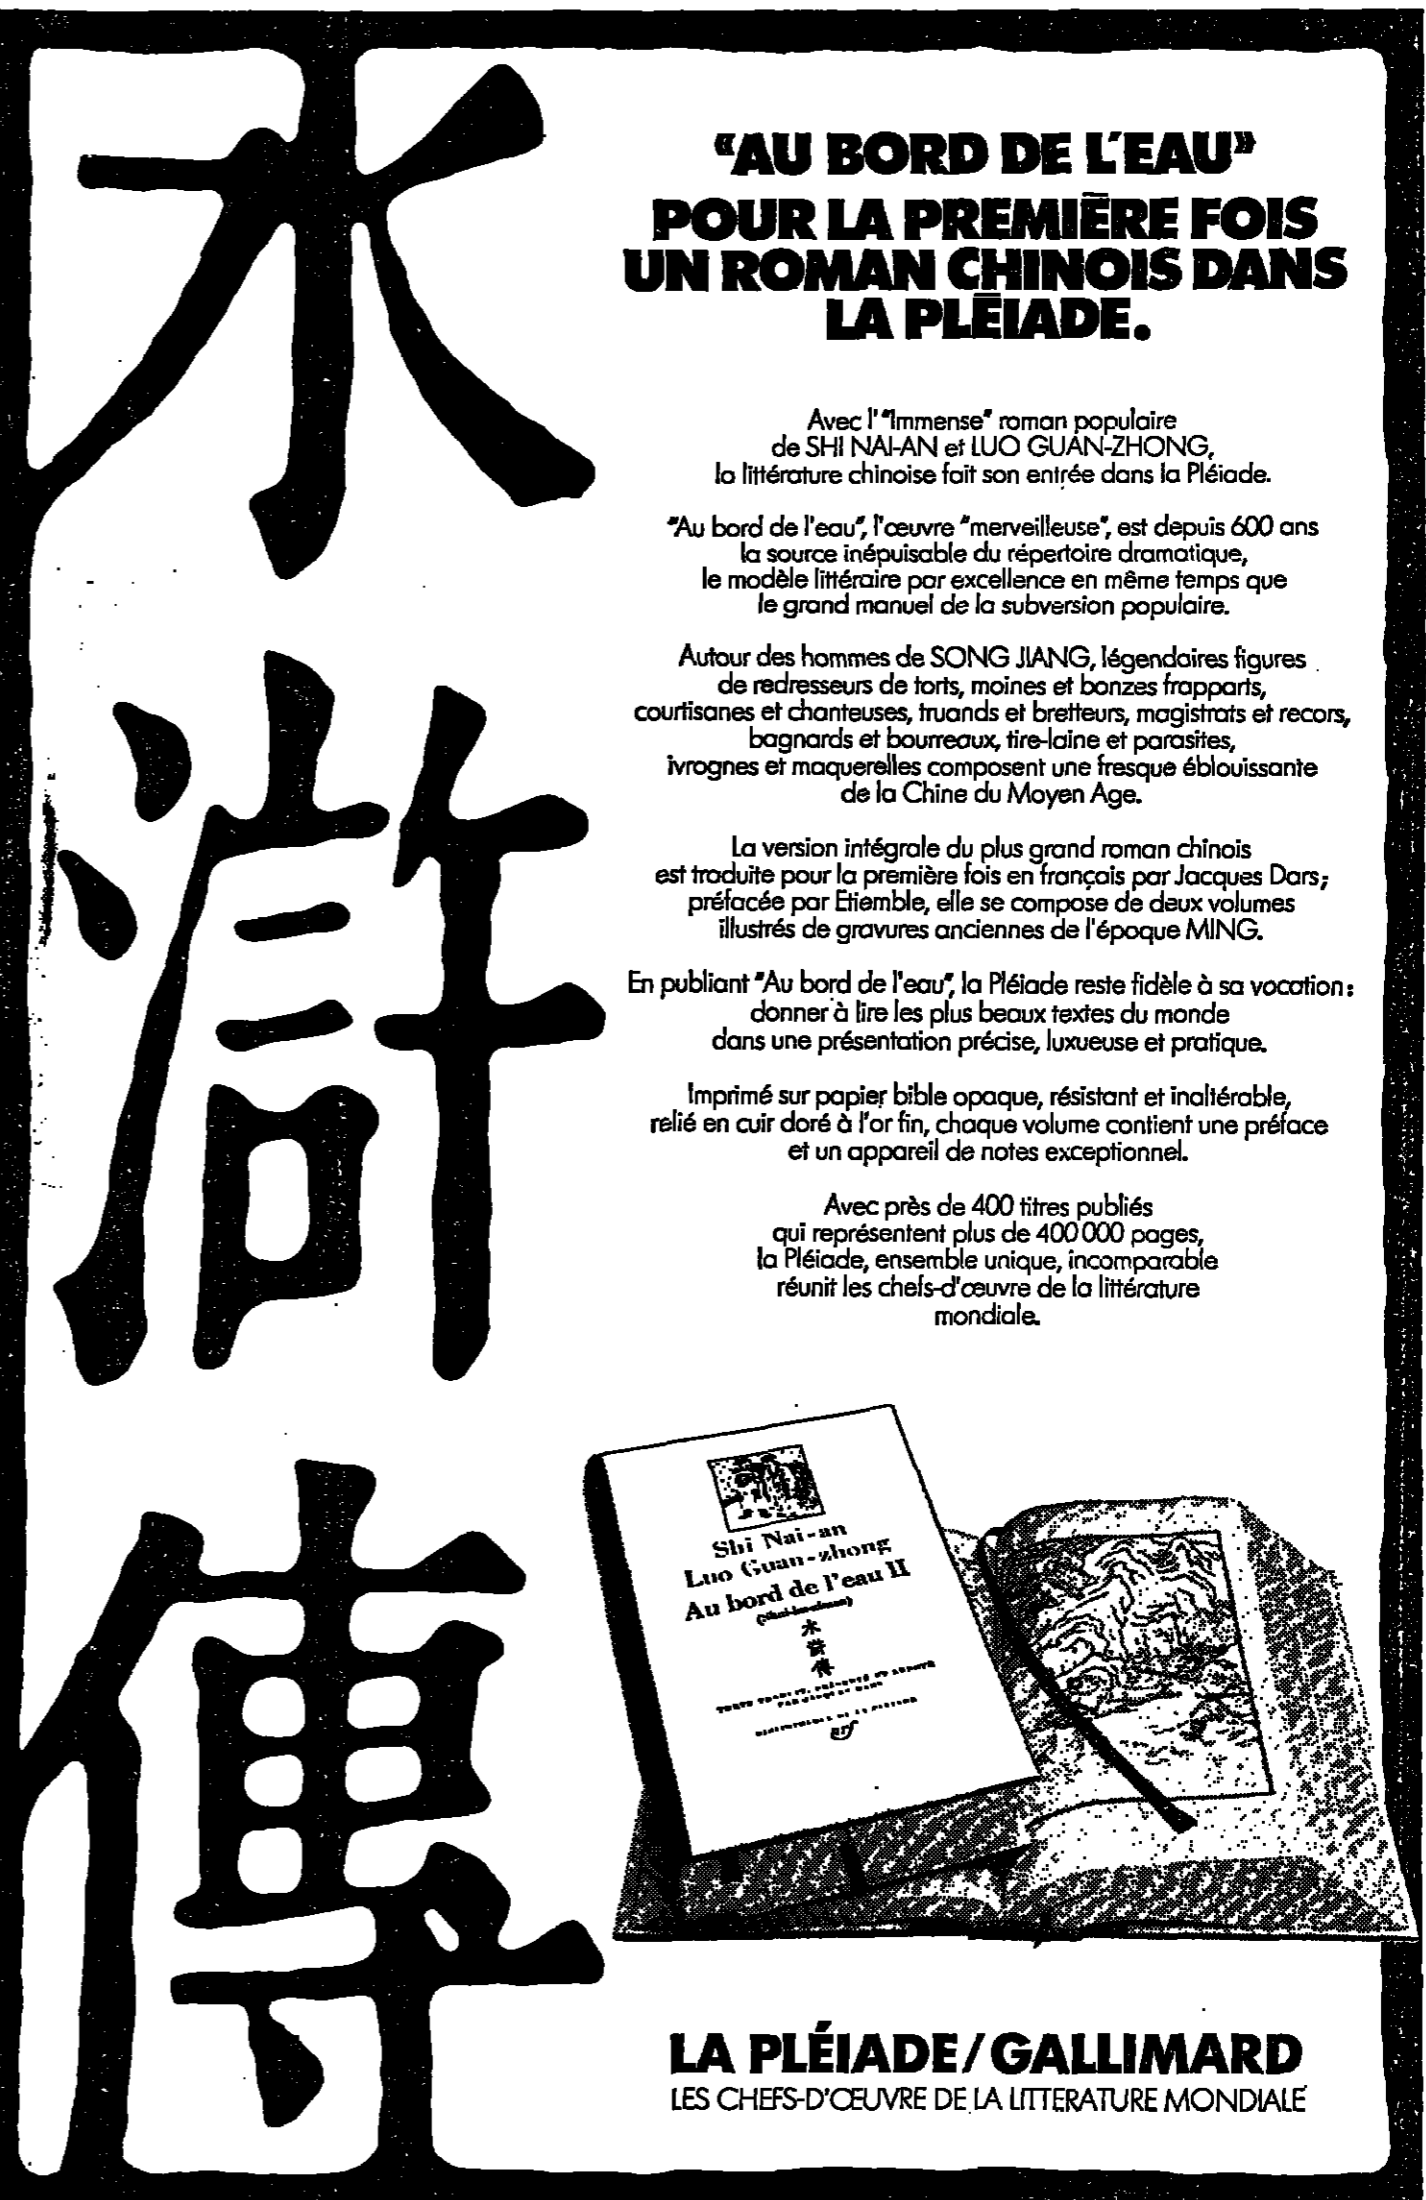 水
滸
傳
“AU BORD DE L'EAU”
POUR LA PREMIÈRE FOIS
UN ROMAN CHINOIS DANS
LA PLÉIADE.
Avec l'"Immense" roman populaire
de SHI NAI-AN et LUO GUAN-ZHONG,
la littérature chinoise fait son entrée dans la Pléiade.
"Au bord de l'eau", l'œuvre "merveilleuse", est depuis 600 ans
la source inépuisable du répertoire dramatique,
le modèle littéraire par excellence en même temps que
le grand manuel de la subversion populaire.
Autour des hommes de SONG JIANG, légendaires figures
de redresseurs de torts, moines et bonzes frapparts,
courtisanes et chanteuses, truands et bretteurs, magistrats et recors,
bagnards et bourreaux, tire-laine et parasites,
ivrognes et maquerelles composent une fresque éblouissante
de la Chine du Moyen Age.
La version intégrale du plus grand roman chinois
est traduite pour la première fois en français par Jacques Dars;
préfacée par Etiemble, elle se compose de deux volumes
illustrés de gravures anciennes de l'époque MING.
En publiant "Au bord de l'eau", la Pléiade reste fidèle à sa vocation:
donner à lire les plus beaux textes du monde
dans une présentation précise, luxueuse et pratique.
Imprimé sur papier bible opaque, résistant et inaltérable,
relié en cuir doré à l'or fin, chaque volume contient une préface
et un appareil de notes exceptionnel.
Avec près de 400 titres publiés
qui représentent plus de 400 000 pages,
la Pléiade, ensemble unique, incomparable
réunit les chefs-d'œuvre de la littérature
mondiale.
Shi Nai-an
Luo Guan-zhong
Au bord de l'eau II
水
滸
傳
BIBLIOTHÈQUE DE LA PLÉIADE
nrf
LA PLÉIADE/GALLIMARD
LES CHEFS-D'ŒUVRE DE LA LITTERATURE MONDIALE